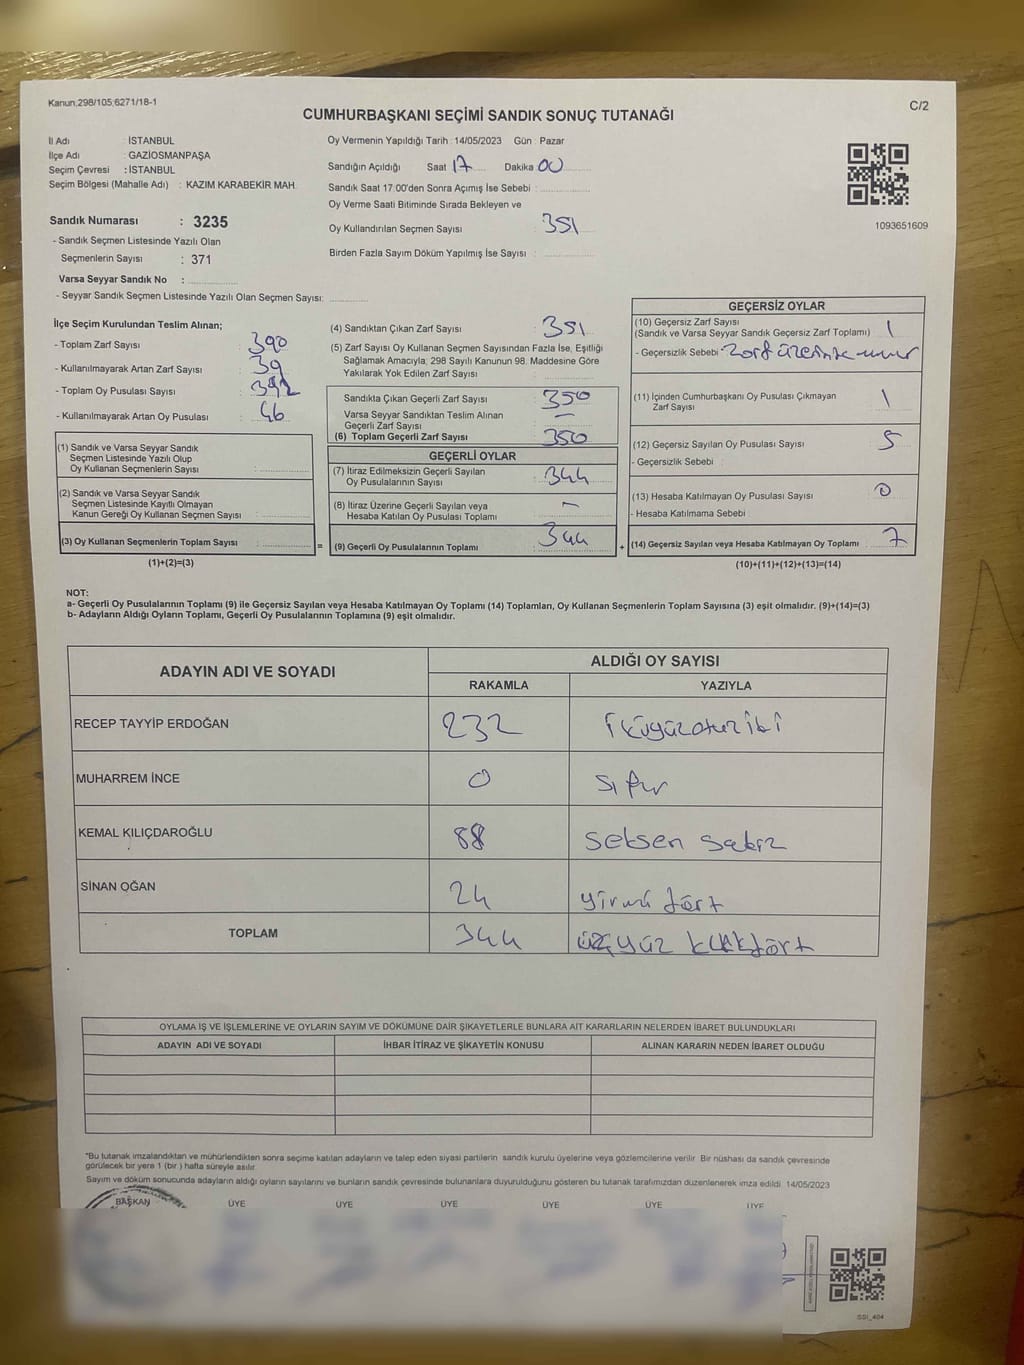 Kanun;298/105;6271/18-1
C/2
CUMHURBAŞKANI SEÇİMİ SANDIK SONUÇ TUTANAĞI
İl Adı : İSTANBUL
İlçe Adı : GAZİOSMANPAŞA
Seçim Çevresi : İSTANBUL
Seçim Bölgesi (Mahalle Adı) : KAZIM KARABEKİR MAH.
Oy Vermenin Yapıldığı Tarih : 14/05/2023 Gün : Pazar
Sandığın Açıldığı Saat 17 Dakika 00
Sandık Saat 17:00'den Sonra Açımış İse Sebebi :
Oy Verme Saati Bitiminde Sırada Bekleyen ve
Oy Kullandırılan Seçmen Sayısı 351
Birden Fazla Sayım Döküm Yapılmış İse Sayısı :
1093651609
Sandık Numarası : 3235
- Sandık Seçmen Listesinde Yazılı Olan
Seçmenlerin Sayısı : 371
Varsa Seyyar Sandık No :
- Seyyar Sandık Seçmen Listesinde Yazılı Olan Seçmen Sayısı:
İlçe Seçim Kurulundan Teslim Alınan;
- Toplam Zarf Sayısı : 390
- Kullanılmayarak Artan Zarf Sayısı : 39
- Toplam Oy Pusulası Sayısı : 392
- Kullanılmayarak Artan Oy Pusulası : 46
(1) Sandık ve Varsa Seyyar Sandık
Seçmen Listesinde Yazılı Olup
Oy Kullanan Seçmenlerin Sayısı :
(2) Sandık ve Varsa Seyyar Sandık
Seçmen Listesinde Kayıtlı Olmayan
Kanun Gereği Oy Kullanan Seçmen Sayısı :
(3) Oy Kullanan Seçmenlerin Toplam Sayısı :
(1)+(2)=(3)
(4) Sandıktan Çıkan Zarf Sayısı : 351
(5) Zarf Sayısı Oy Kullanan Seçmen Sayısından Fazla İse, Eşitliği
Sağlamak Amacıyla, 298 Sayılı Kanunun 98. Maddesine Göre
Yakılarak Yok Edilen Zarf Sayısı :
Sandıkta Çıkan Geçerli Zarf Sayısı : 350
Varsa Seyyar Sandıktan Teslim Alınan
Geçerli Zarf Sayısı : –
(6) Toplam Geçerli Zarf Sayısı : 350
GEÇERLİ OYLAR
(7) İtiraz Edilmeksizin Geçerli Sayılan
Oy Pusulalarının Sayısı : 344
(8) İtiraz Üzerine Geçerli Sayılan veya
Hesaba Katılan Oy Pusulası Toplamı : –
= (9) Geçerli Oy Pusulalarının Toplamı : 344
GEÇERSİZ OYLAR
(10) Geçersiz Zarf Sayısı
(Sandık ve Varsa Seyyar Sandık Geçersiz Zarf Toplamı) : 1
- Geçersizlik Sebebi : Zarf üzerinde
(11) İçinden Cumhurbaşkanı Oy Pusulası Çıkmayan
Zarf Sayısı 1
(12) Geçersiz Sayılan Oy Pusulası Sayısı 5
- Geçersizlik Sebebi :
(13) Hesaba Katılmayan Oy Pusulası Sayısı 0
- Hesaba Katılmama Sebebi :
+ (14) Geçersiz Sayılan veya Hesaba Katılmayan Oy Toplamı : 7
(10)+(11)+(12)+(13)=(14)
NOT:
a- Geçerli Oy Pusulalarının Toplamı (9) ile Geçersiz Sayılan veya Hesaba Katılmayan Oy Toplamı (14) Toplamları, Oy Kullanan Seçmenlerin Toplam Sayısına (3) eşit olmalıdır. (9)+(14)=(3)
b- Adayların Aldığı Oyların Toplamı, Geçerli Oy Pusulalarının Toplamına (9) eşit olmalıdır.
ADAYIN ADI VE SOYADI
ALDIĞI OY SAYISI
RAKAMLA YAZIYLA
RECEP TAYYİP ERDOĞAN 232 ikiyüzotuziki
MUHARREM İNCE 0 sıfır
KEMAL KILIÇDAROĞLU 88 seksen sekiz
SİNAN OĞAN 24 yirmi dört
TOPLAM 344 üçyüz kırkdört
OYLAMA İŞ VE İŞLEMLERİNE VE OYLARIN SAYIM VE DÖKÜMÜNE DAİR ŞİKAYETLERLE BUNLARA AİT KARARLARIN NELERDEN İBARET BULUNDUKLARI
ADAYIN ADI VE SOYADI İHBAR İTİRAZ VE ŞİKAYETİN KONUSU ALINAN KARARIN NEDEN İBARET OLDUĞU
*Bu tutanak imzalandıktan ve mühürlendikten sonra seçime katılan adayların ve talep eden siyasi partilerin sandık kurulu üyelerine veya gözlemcilerine verilir. Bir nüshası da sandık çevresinde
görülecek bir yere 1 (bir ) hafta süreyle asılır.
Sayım ve döküm sonucunda adayların aldığı oyların sayılarını ve bunların sandık çevresinde bulunanlara duyurulduğunu gösteren bu tutanak tarafımızdan düzenlenerek imza edildi. 14/05/2023
BAŞKAN ÜYE ÜYE ÜYE ÜYE ÜYE ÜYE
SSI_404